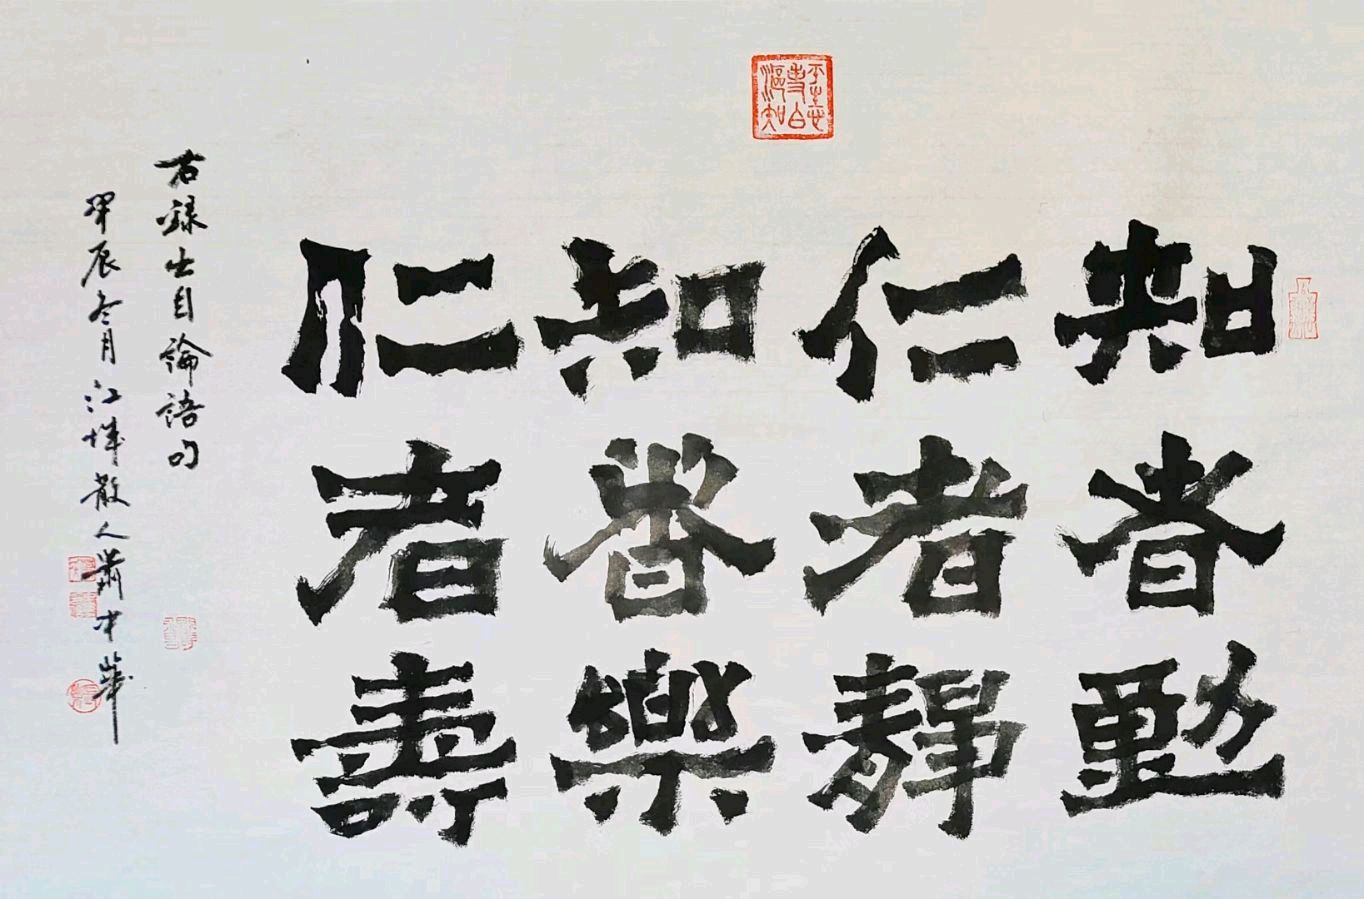 知者動
仁者靜
知者樂
仁者壽
右録出自論語句
甲辰冬月江城散人蕭中華